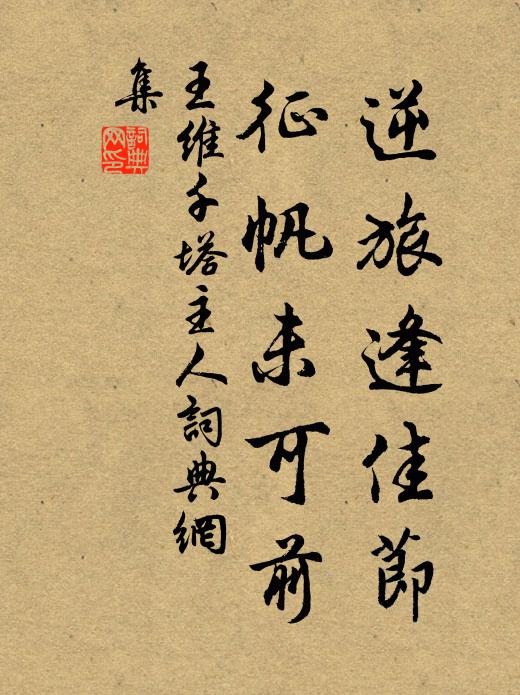 逆旅逢佳節
征帆未可前
王維千塔主人詞典網
集
詞典網印